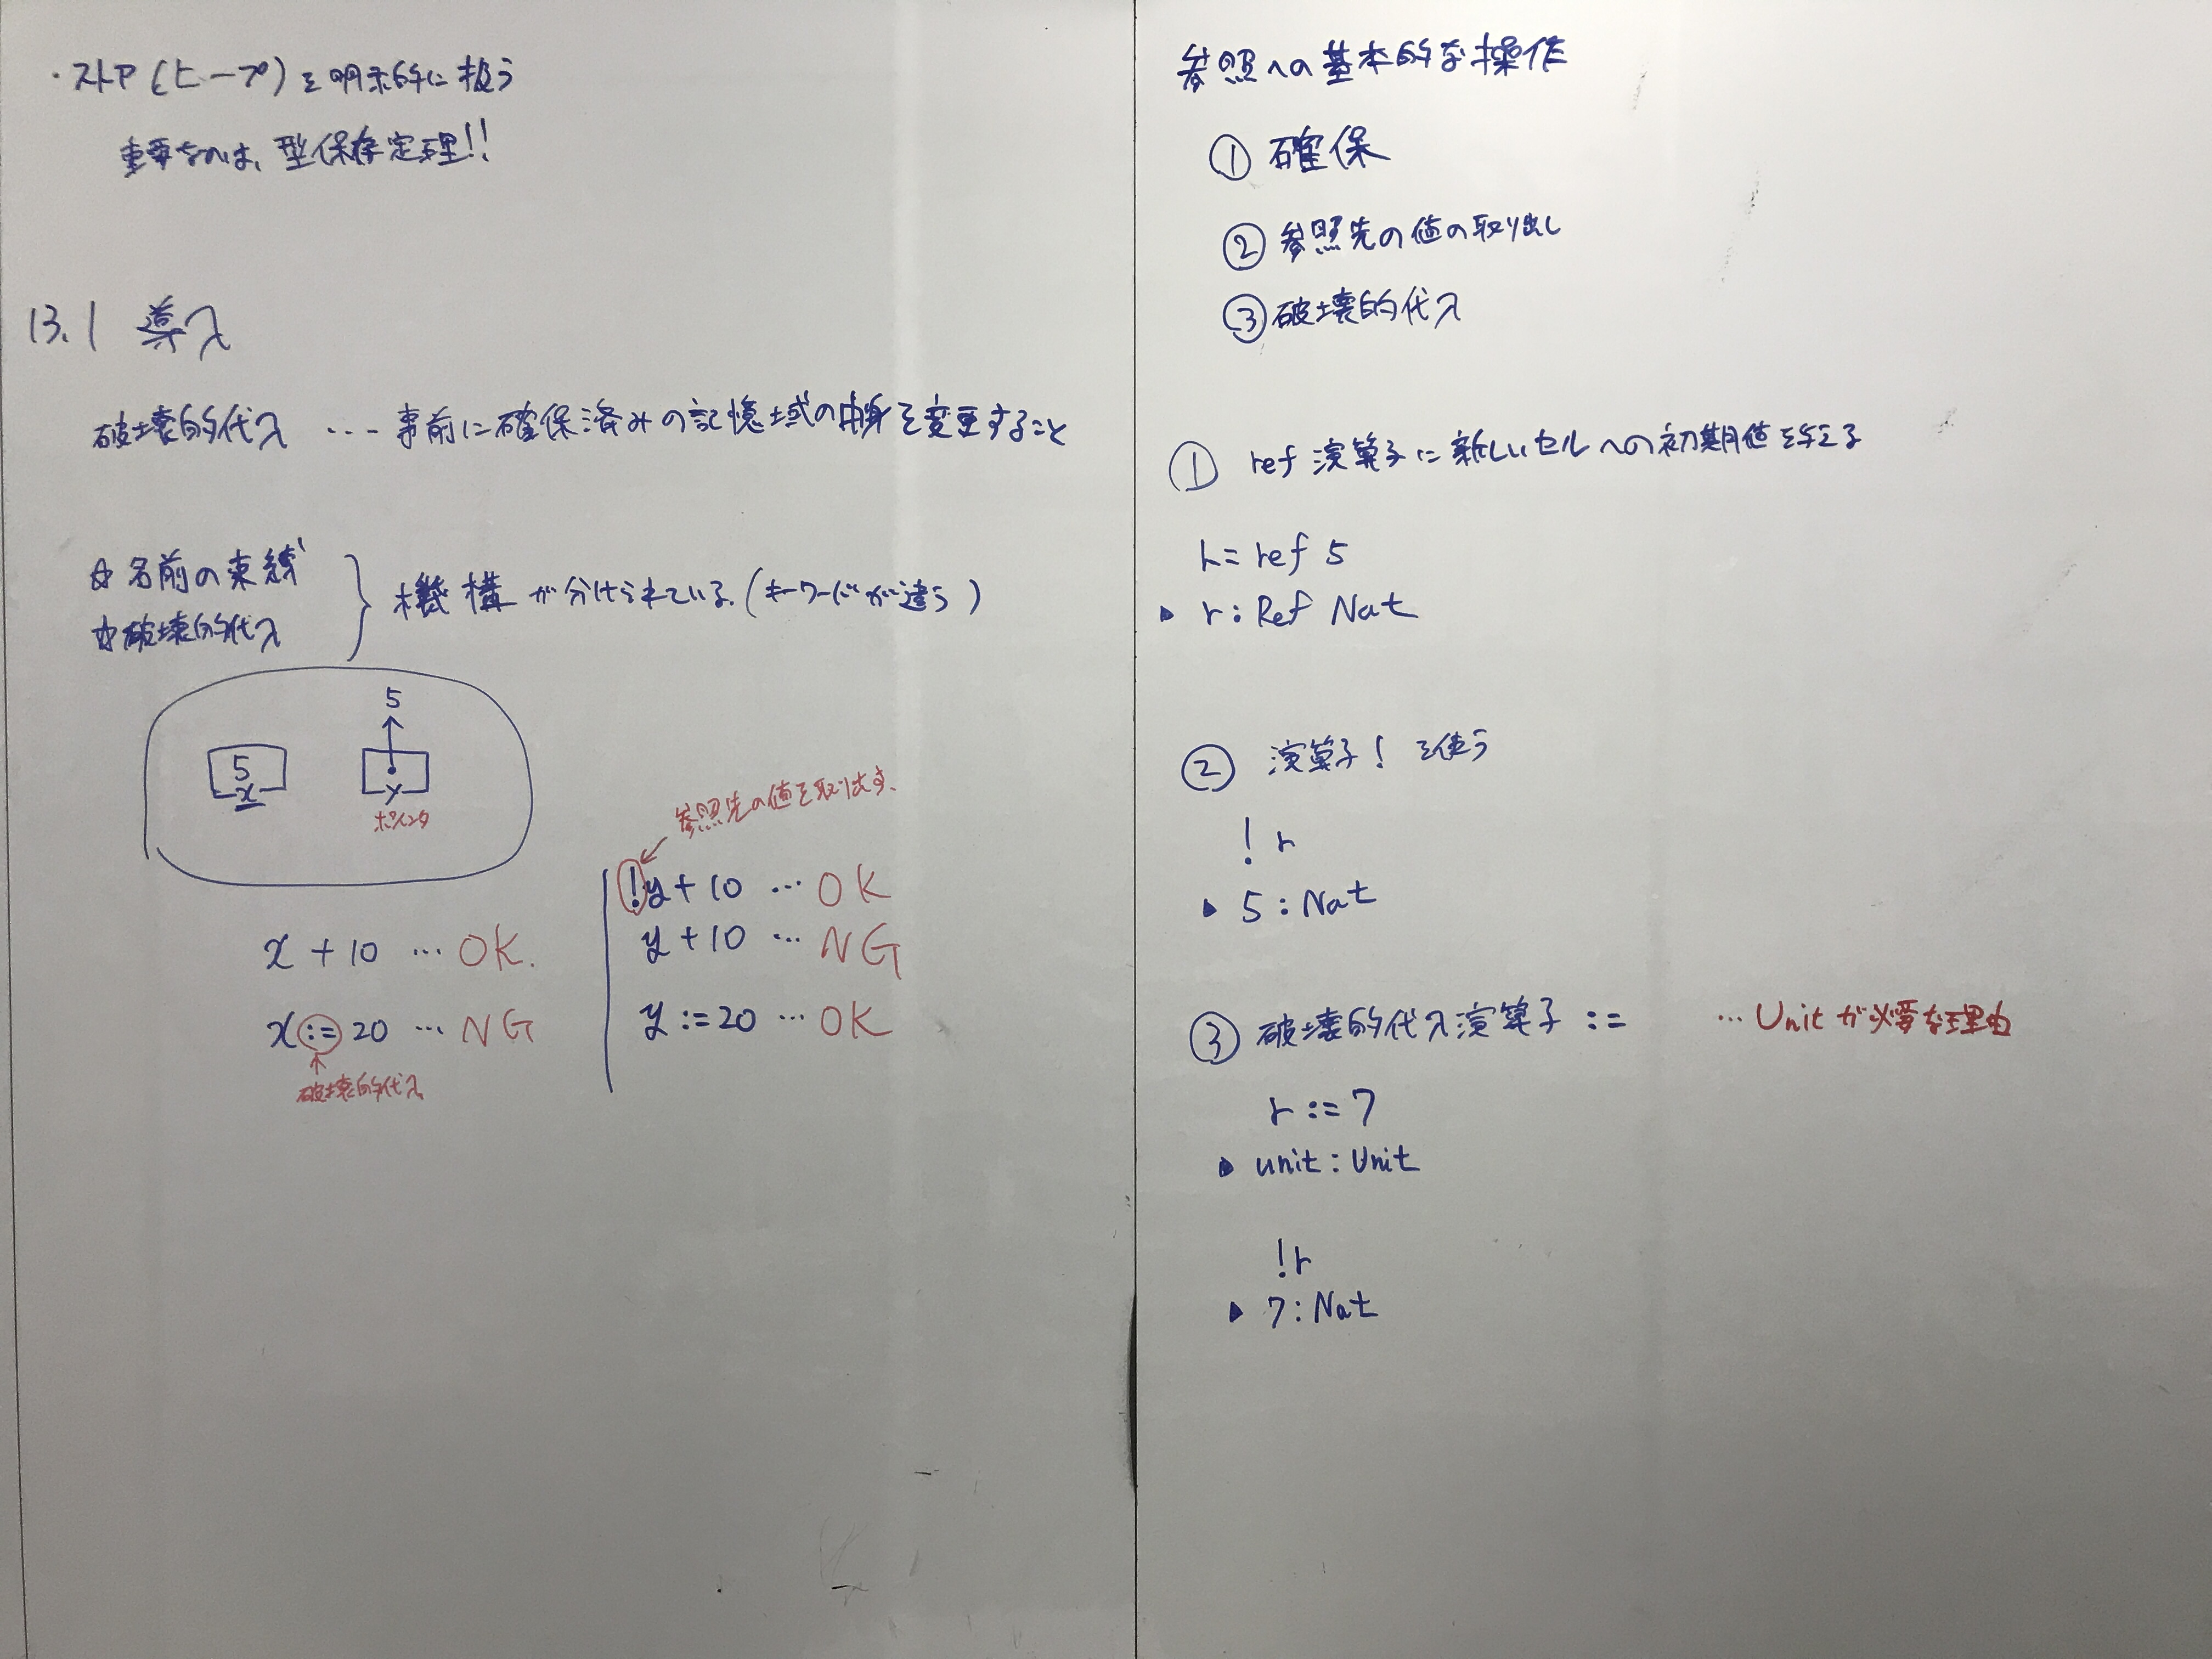 ・ストア(ヒープ)を明示的に扱う
重要なのは、型保存定理!!
13.1 導入
破壊的代入 … 事前に確保済みの記憶域の中身を変更すること
☆名前の束縛
☆破壊的代入
機構が分けられている.(キーワードが違う)
5
5
x
y
ポインタ
参照先の値を取り出す.
x + 10 … OK.
x := 20 … NG
破壊的代入
!y + 10 … OK
y + 10 … NG
y := 20 … OK
参照への基本的な操作
① 確保
② 参照先の値の取り出し
③ 破壊的代入
① ref 演算子に新しいセルへの初期値を与える
r = ref 5
▶ r : Ref Nat
② 演算子 ! を使う
! r
▶ 5 : Nat
③ 破壊的代入演算子 := … Unit が必要な理由
r := 7
▶ unit : Unit
!r
▶ 7 : Nat